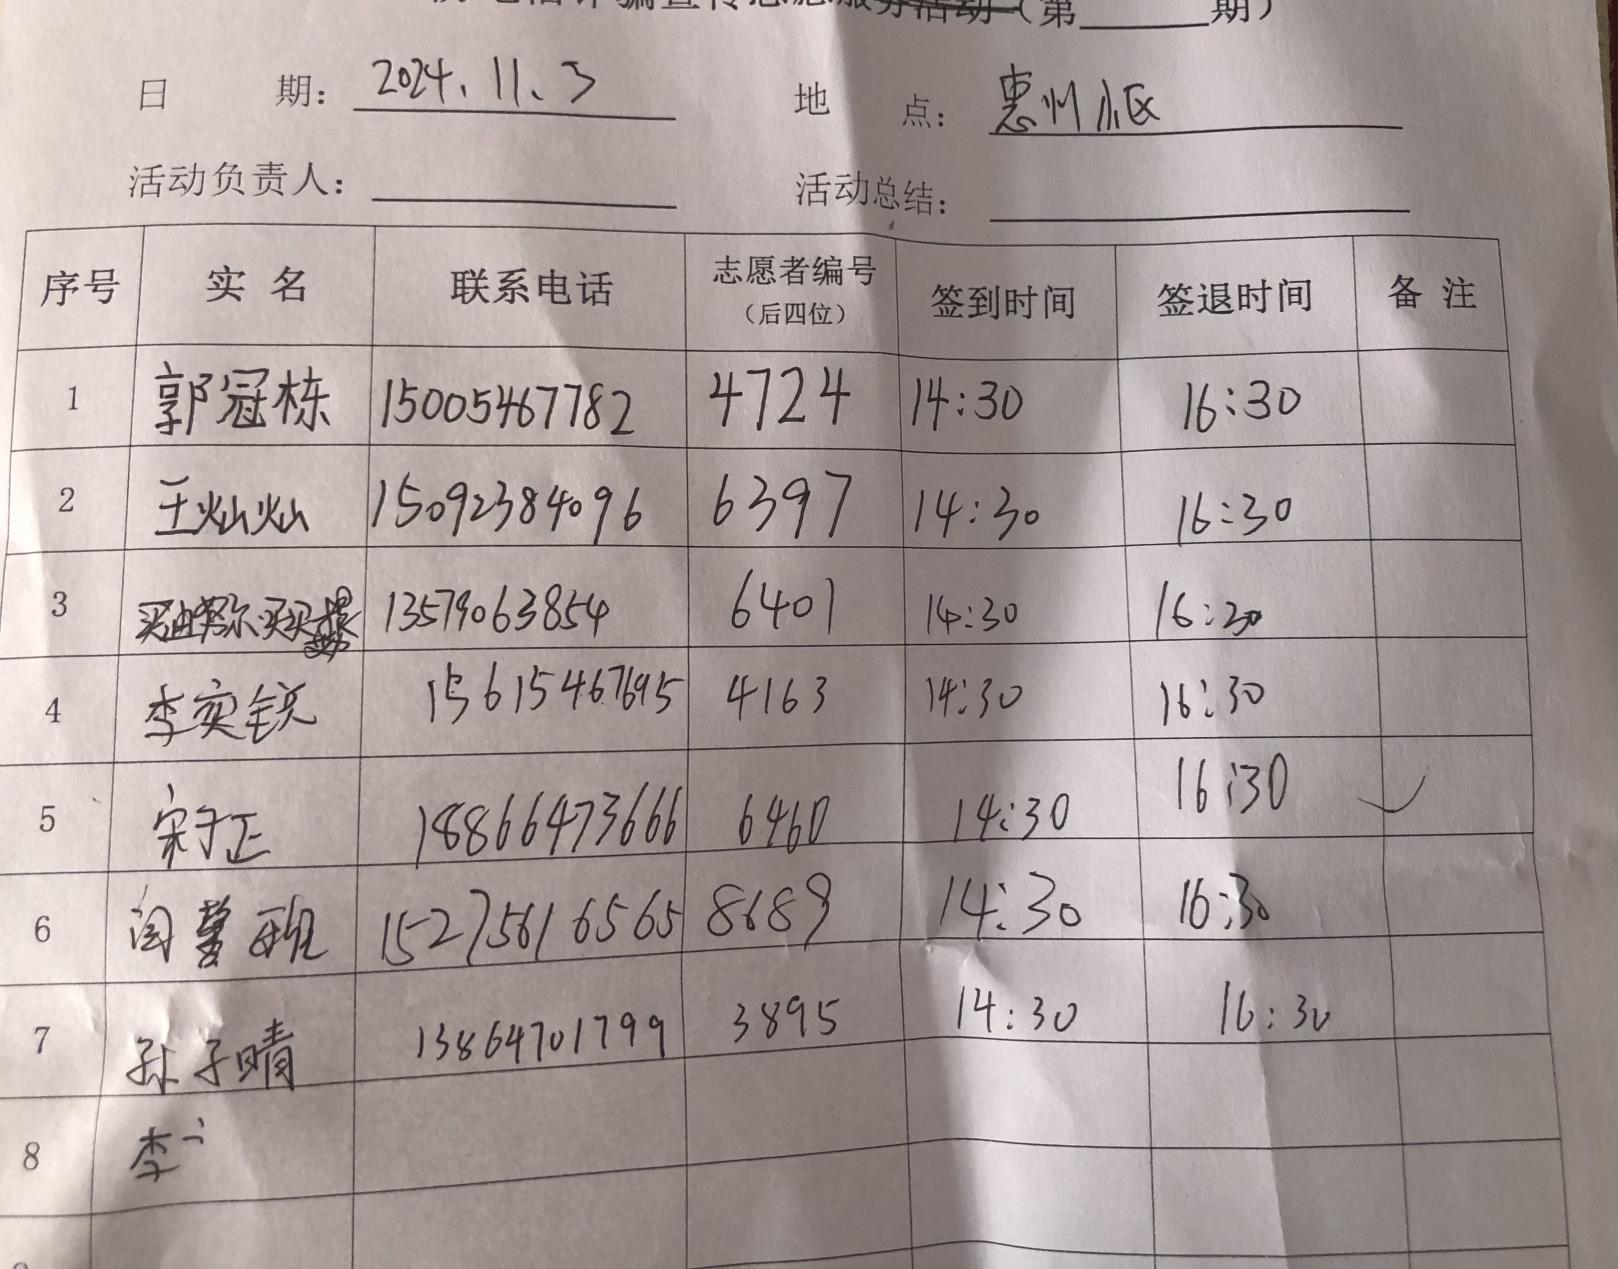 电信诈骗宣传志愿服务活动（第 期）
日 期： 2024.11.3 地 点： 惠州小区
活动负责人： 活动总结：
序号 实 名 联系电话 志愿者编号（后四位） 签到时间 签退时间 备 注
1 郭冠栋 15005467782 4724 14:30 16:30
2 王灿灿 15092384096 6397 14:30 16:30
3 13579063854 6401 14:30 16:30
4 李奕锐 15615467695 4163 14:30 16:30
5 宋子正 18866473666 6460 14:30 16:30 ✓
6 闫 15275616565 8689 14:30 16:30
7 孙子晴 13864701799 3895 14:30 16:30
8 李